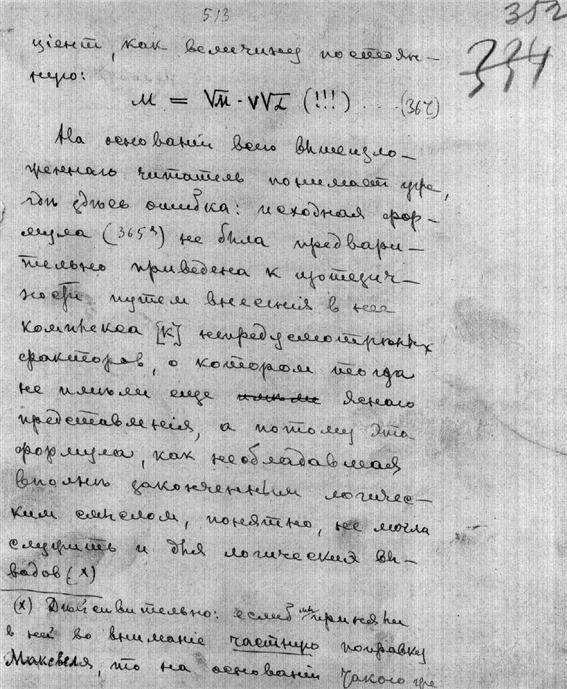 513
352
334
цiент, как величину постоян–
ную:
M = √M · v√L (!!!) ... (367)
На основанiи всего вышеизло–
женнаго читатель понимает уже,
где здесь ошибка: исходная фор–
мула (365) не была предвари–
тельно приведена к изотетич–
ности путем внесенiя в нее
комплекса [K] непредусмотренных
факторов, о котором тогда
не имели еще яснаго
представленiя, а потому эта
формула, как необладавшая
вполне законченным логичес–
ким смыслом, понятно, не могла
служить и для логических вы–
водов (x)
(x) Действительно: если б мы приняли
в ней во вниманiе частную поправку
Максвеля, то на основанiи такого же